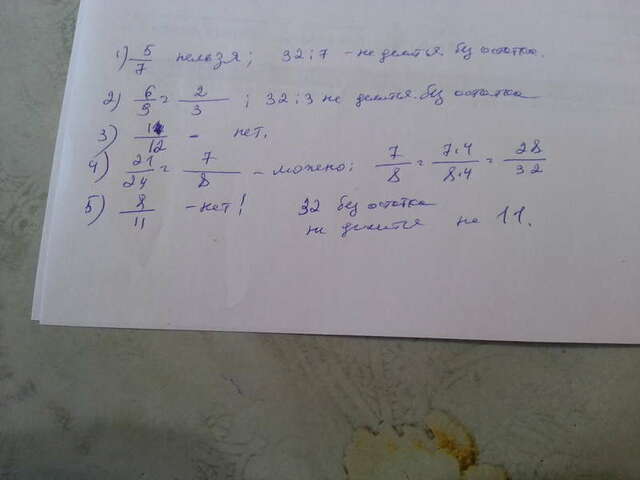 1) 5/7 нельзя; 32:7 - не делится без остатка.
2) 6/9 = 2/3; 32:3 не делится без остатка
3) 11/12 - нет.
4) 21/24 = 7/8 - можено: 7/8 = 7·4/8·4 = 28/32
5) 8/11 - нет! 32 без остатка
не делится на 11.